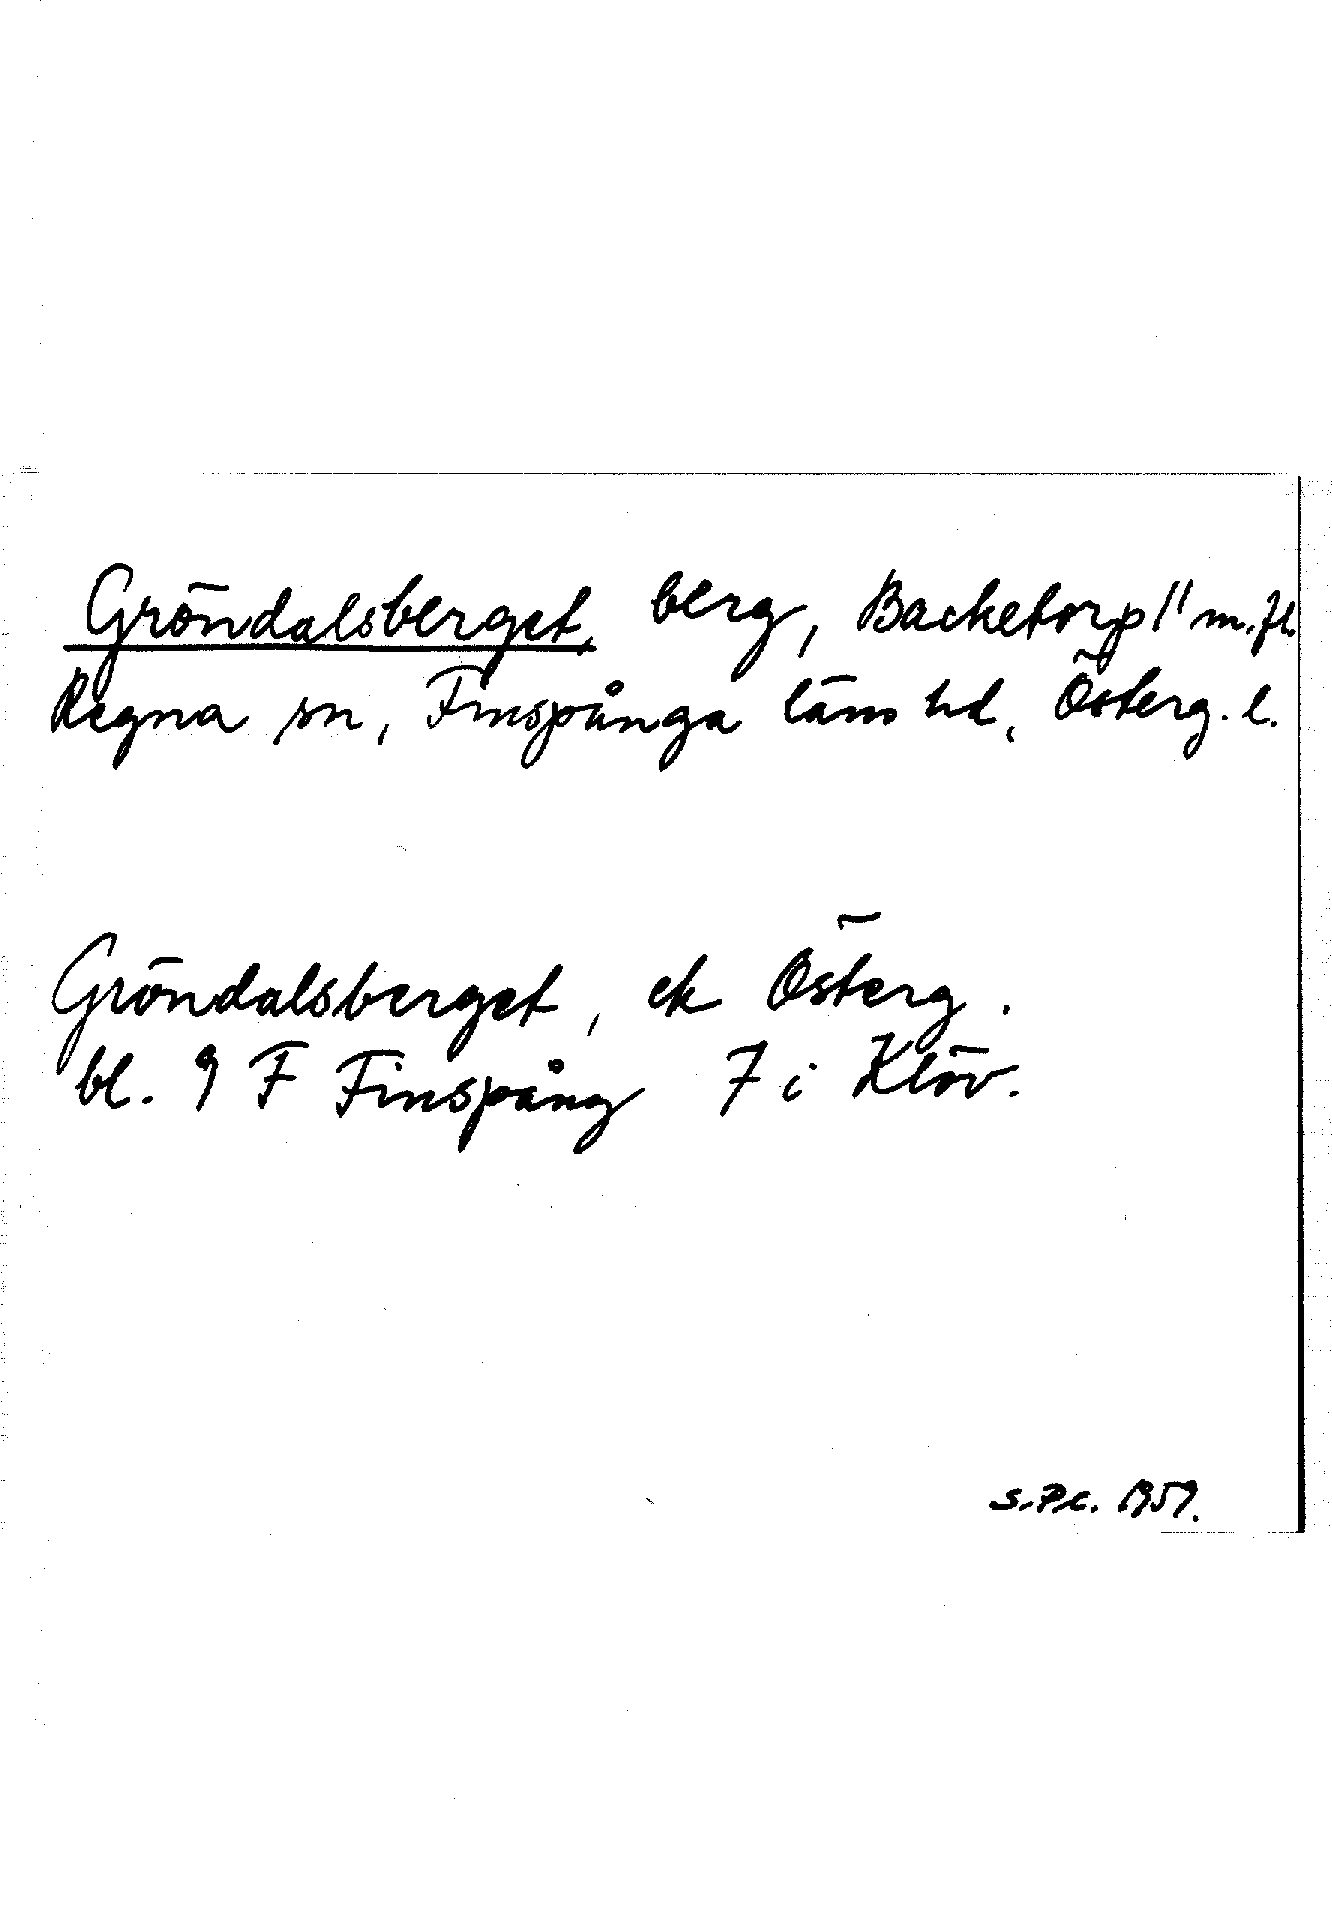 Gröndalsberget, berg, Backetorp 1" m.fl.
Regna sn, Finspånga läns hd, Österg. l.
Gröndalsberget, ek Österg.
bl. 9 F Finspång 7 i Klöv.
S.P.C. 1959.